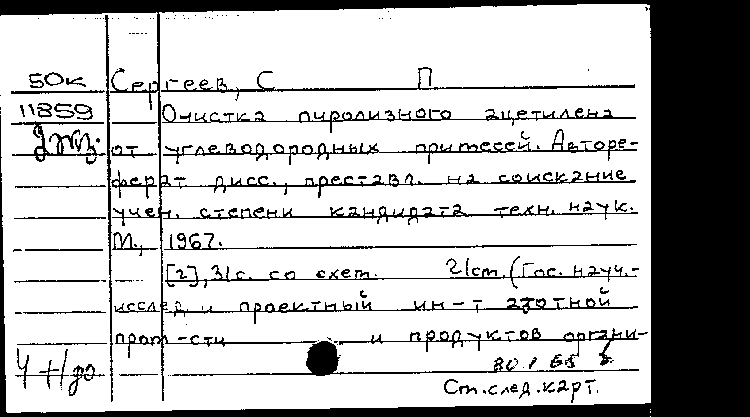 50к Сергеев, С П
11859 Очистка пиролизного ацетилена
2 экз. от углеводородных примесей. Авторе-
ферат дисс., преставл. на соискание
учен. степени кандидата техн. наук.
М., 1967.
[2], 31с. со схем. 21см. (Гос. науч.-
исслед. и проектный ин-т азотной
пром-сти и продуктов органи-
См.след.карт.